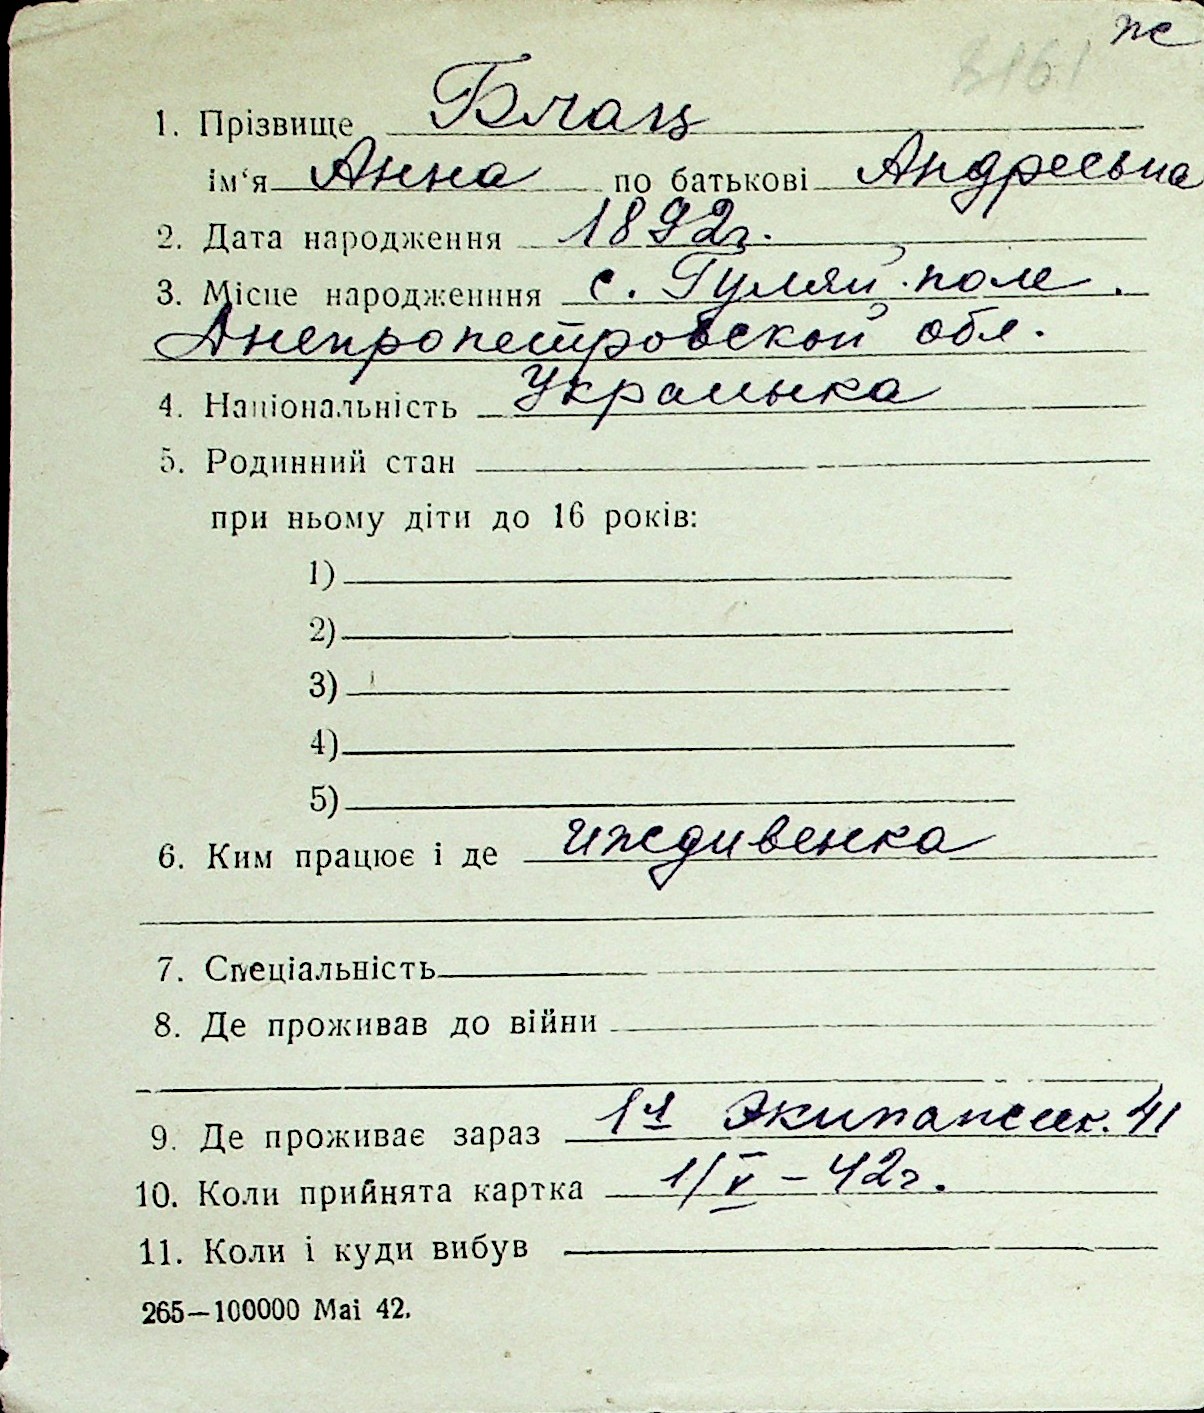 ж
1. Прізвище Блащ
ім‘я Анна по батькові Андреевна
2. Дата народження 1892г.
3. Місце народженння с. Гуляй-поле.
Днепропетровской обл.
4. Національність Украинка
5. Родинний стан
при ньому діти до 16 років:
1)
2)
3)
4)
5)
6. Ким працює і де иждивенка
7. Спеціальність
8. Де проживав до війни
9. Де проживає зараз 1я Экипажеск. 41
10. Коли прийнята картка 1/V – 42г.
11. Коли і куди вибув
265—100000 Маі 42.